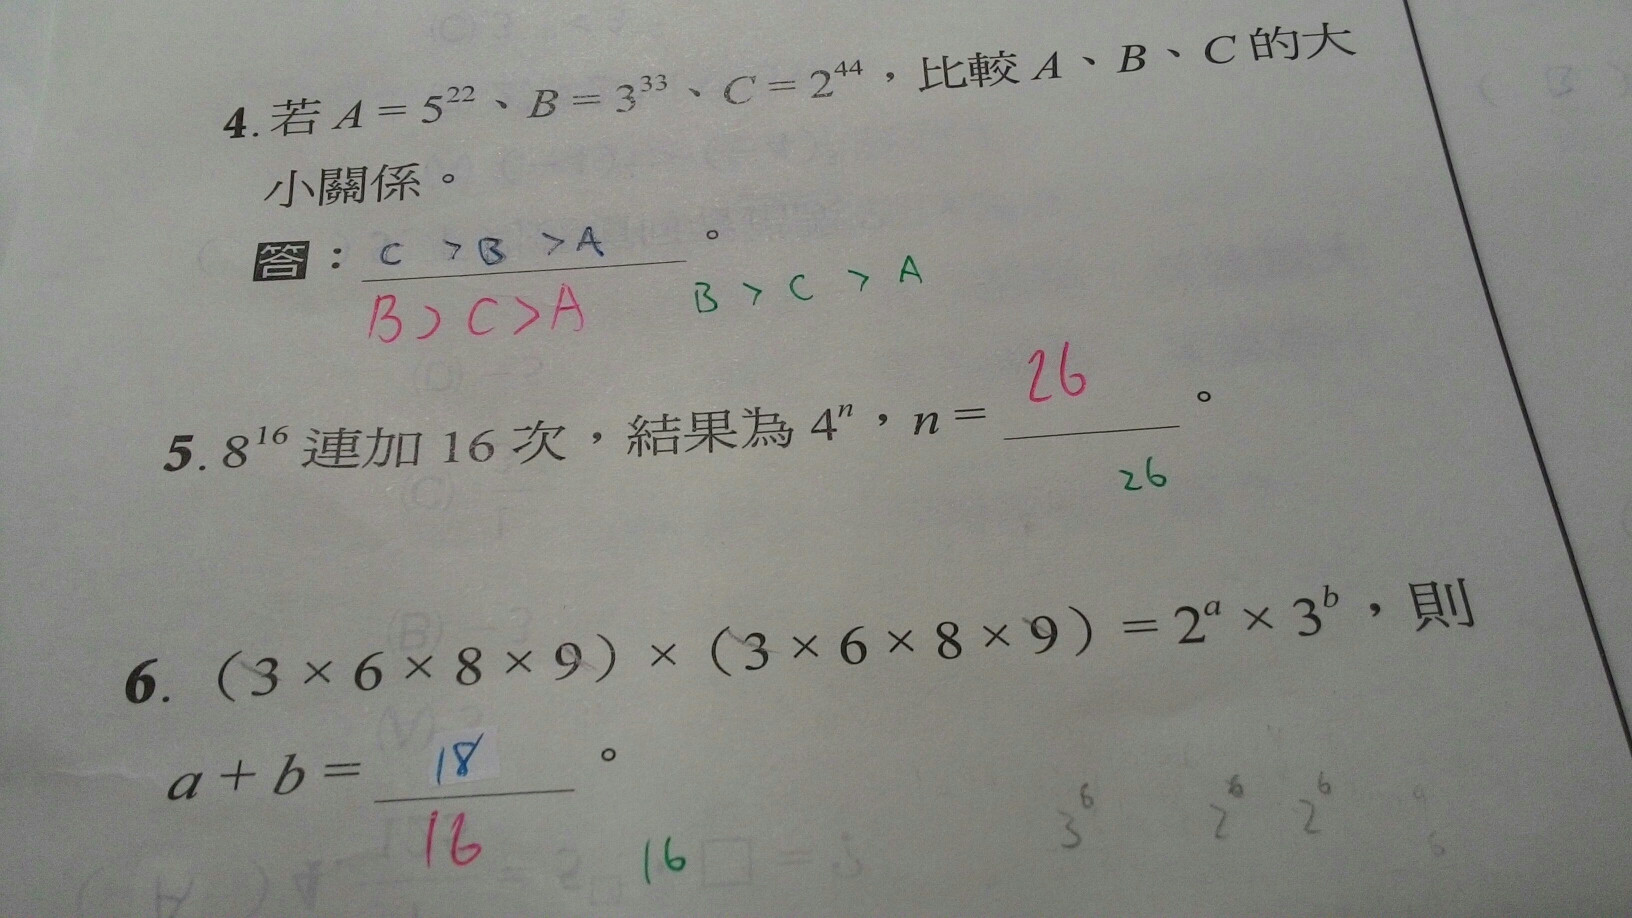 4. 若 A = 5²²、B = 3³³、C = 2⁴⁴，比較 A、B、C 的大
小關係。
答：C > B > A。
B > C > A
B > C > A
26
5. 8¹⁶ 連加 16 次，結果為 4ⁿ，n = ＿＿。
26
6. （3 × 6 × 8 × 9）×（3 × 6 × 8 × 9）= 2ᵃ × 3ᵇ，則
a + b = 18。
3⁶ 2⁶ 2⁶
16
16